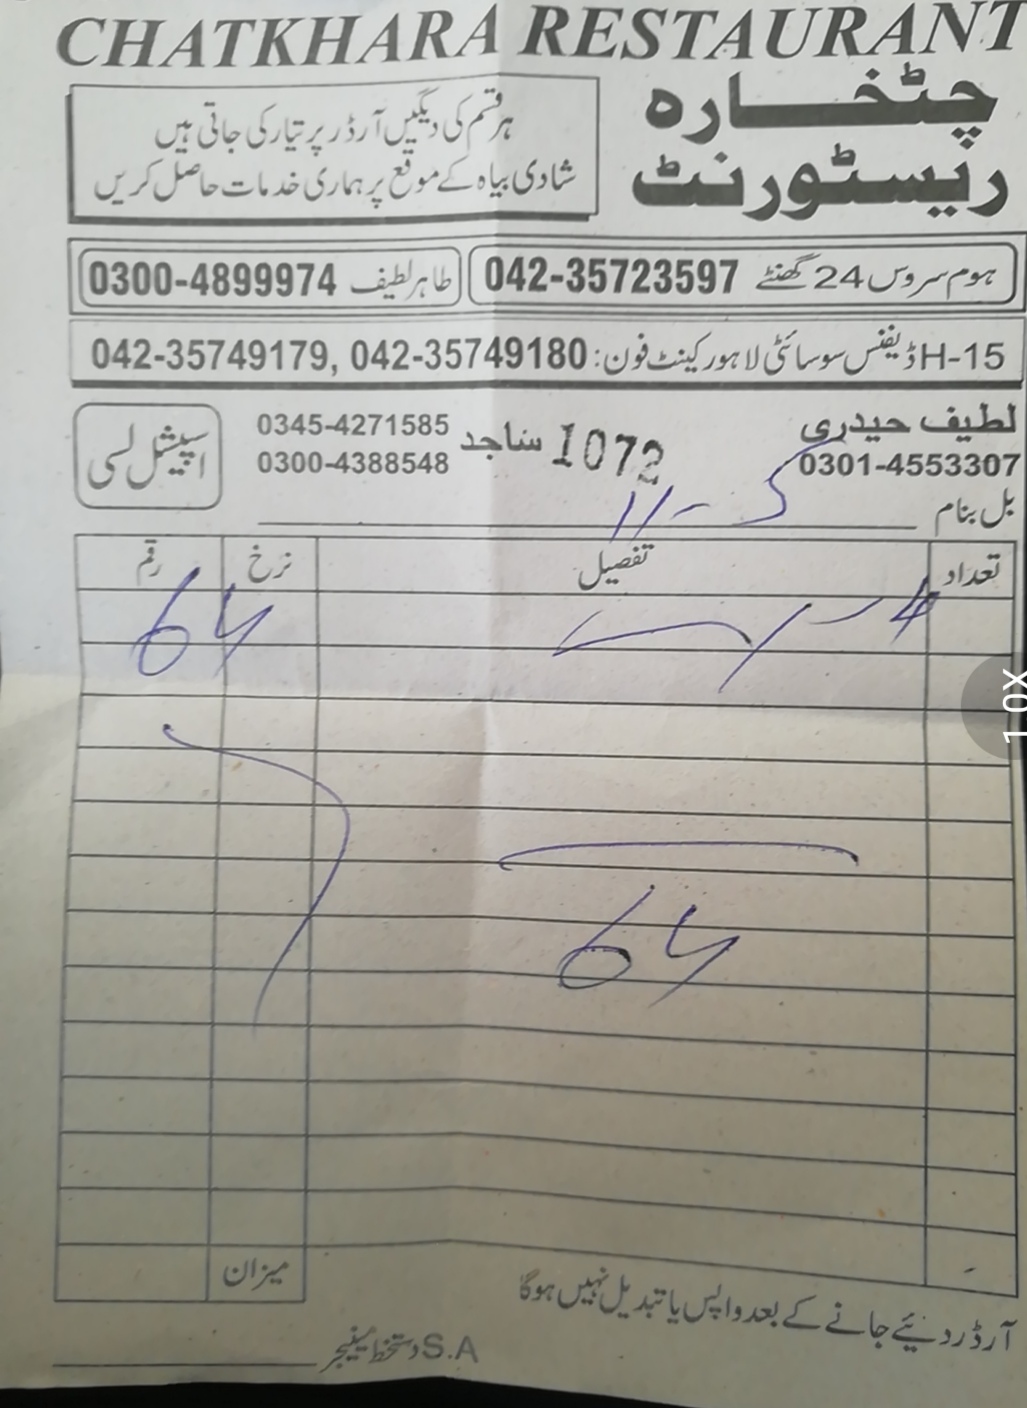 CHATKHARA RESTAURANT
چٹخارہ
ریسٹورنٹ
ہر قسم کی دیگیں آرڈر پر تیار کی جاتی ہیں
شادی بیاہ کے موقع پر ہماری خدمات حاصل کریں
ہوم سروس 24 گھنٹے 042-35723597
طاہر لطیف 0300-4899974
H-15 ڈیفنس سوسائٹی لاہور کینٹ فون: 042-35749179, 042-35749180
لطیف حیدری
0301-4553307
1072
ساجد 0345-4271585
0300-4388548
اسپیشل لسی
بل بنام
11-5
تعداد تفصیل نرخ رقم
4
64
64
میزان
آرڈر دیئے جانے کے بعد واپس یا تبدیل نہیں ہوگا
S.A دستخط مینیجر
1.0X